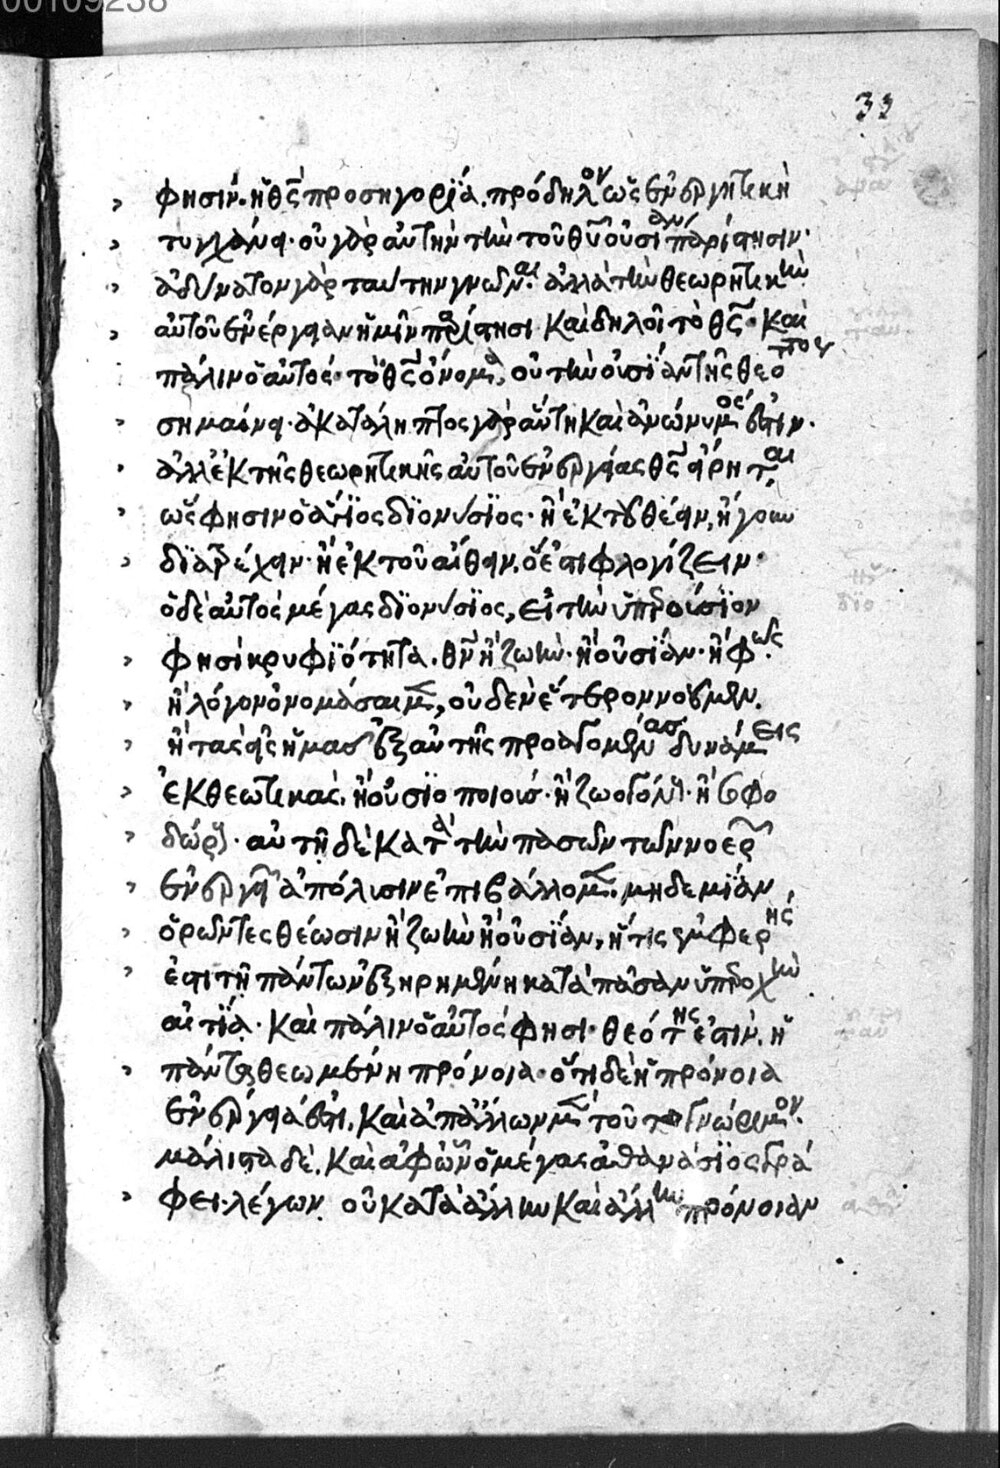 00109238
33
φησίν· ἡ θς̄ προσηγορία, πρόδηλον ὡς ἐνεργητικὴ
τυγχάνει· οὐ γὰρ αὐτὴν τὴν τοῦ θῡ οὐσίαν παρίστησιν·
ἀδύνατον γὰρ ταύτην γνῶναι· ἀλλὰ τὴν θεωρητικὴν
αὐτοῦ ἐνέργειαν ἡμῖν παρίστησι καὶ δηλοῖ τὸ θς̄· καὶ
πάλιν ὁ αὐτός· τὸ θς̄ ὄνομα, οὐ τὴν οὐσίαν τῆς θεότητος
σημαίνει· ἀκατάληπτος γὰρ αὕτη καὶ ἀνώνυμός ἐστιν·
ἀλλ' ἐκ τῆς θεωρητικῆς αὐτοῦ ἐνεργείας θς̄ εἴρηται
ὥς φησιν ὁ ἅγιος διονύσιος· ἢ ἐκ τοῦ θέειν, ἤγουν
διατρέχειν· ἢ ἐκ τοῦ αἴθειν, ὅ ἐστι φλογίζειν·
ὁ δὲ αὐτὸς μέγας διονύσιος, εἰ τὴν ὑπερούσιον
φησὶ κρυφιότητα, θν̄ ἢ ζωὴν· ἢ οὐσίαν· ἢ φῶς·
ἢ λόγον ὀνομάσαιμεν, οὐδὲν ἕτερον νοοῦμεν,
ἢ τὰς εἰς ἡμᾶς ἐξ αὐτῆς προαγομένας δυνάμεις
ἐκθεωτικὰς, ἢ οὐσιοποιούς· ἢ ζωογόνους· ἢ σοφο
δώρους· αὐτῇ δὲ κατὰ τὴν πασῶν τῶν νοερῶν
ἐνεργειῶν ἀπόλυσιν ἐπιβάλλομεν, μηδεμίαν
ὁρῶντες θέωσιν ἢ ζωὴν ἢ οὐσίαν, ἥτις ἐμφερής
ἐστι τῇ πάντων ἐξῃρημένῃ κατὰ πᾶσαν ὑπεροχὴν
αἰτίᾳ· καὶ πάλιν ὁ αὐτός φησι· θεότης ἐστίν, ἡ
πάντας θεωμένη πρόνοια· ὅτι δὲ ἡ πρόνοια
ἐνέργειά ἐστι, καὶ ἀπ' ἄλλων μὲν τοῦτο γνώριμον·
μάλιστα δὲ, καὶ ἀφ' ὧν ὁ μέγας ἀθανάσιος γρά
φει· λέγων οὐ κατὰ ἄλλην καὶ ἄλλην πρόνοιαν